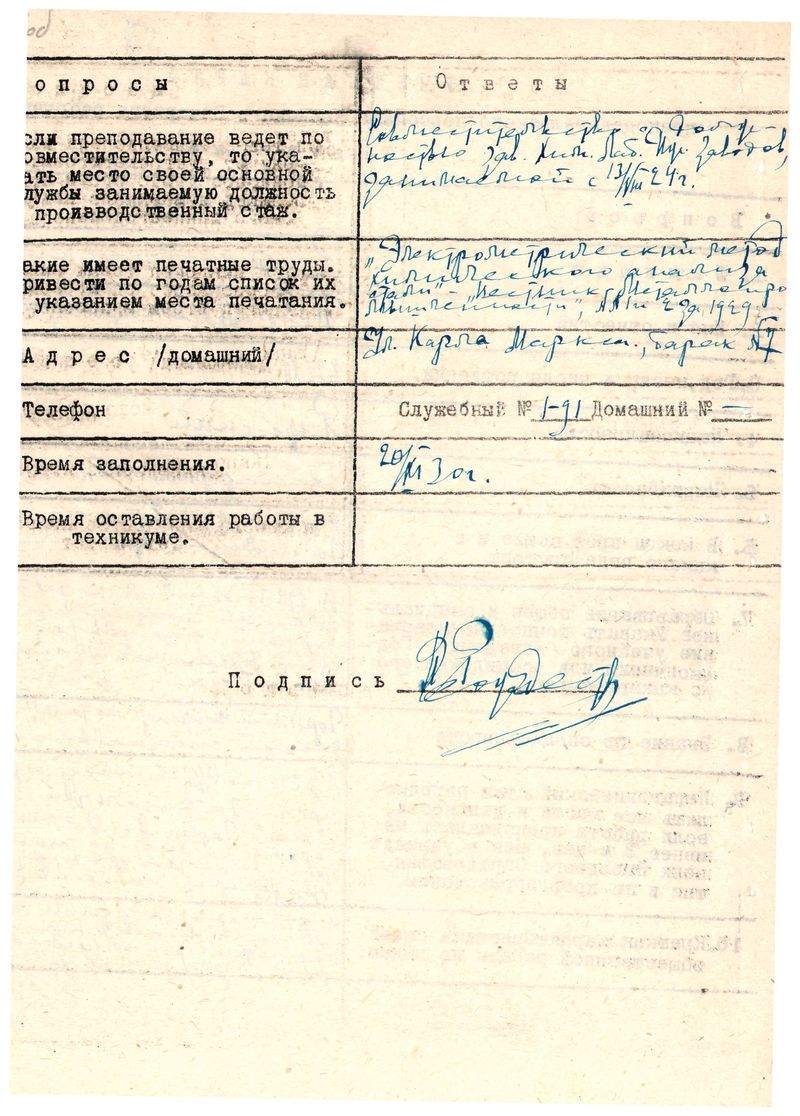 об
опросы
Ответы
сли преподавание ведет по
овместительству, то ука-
ать место своей основной
лужбы занимаемую должность
производственный стаж.
Совместительство с должн-
ностью зав. хим. лаб. заводов,
занимаемой с 13/VIII-24г.
акие имеет печатные труды.
ривести по годам список их
указанием места печатания.
"Электрометрический метод
химического анализа
стали" "Вестник Металлопро
мышленности", 1929
Адрес /домашний/
Ул. Карла Маркса, барак №
Телефон
Служебный № 1-91 Домашний № —
Время заполнения.
20/ 30г.
Время оставления работы в
техникуме.
Подпись